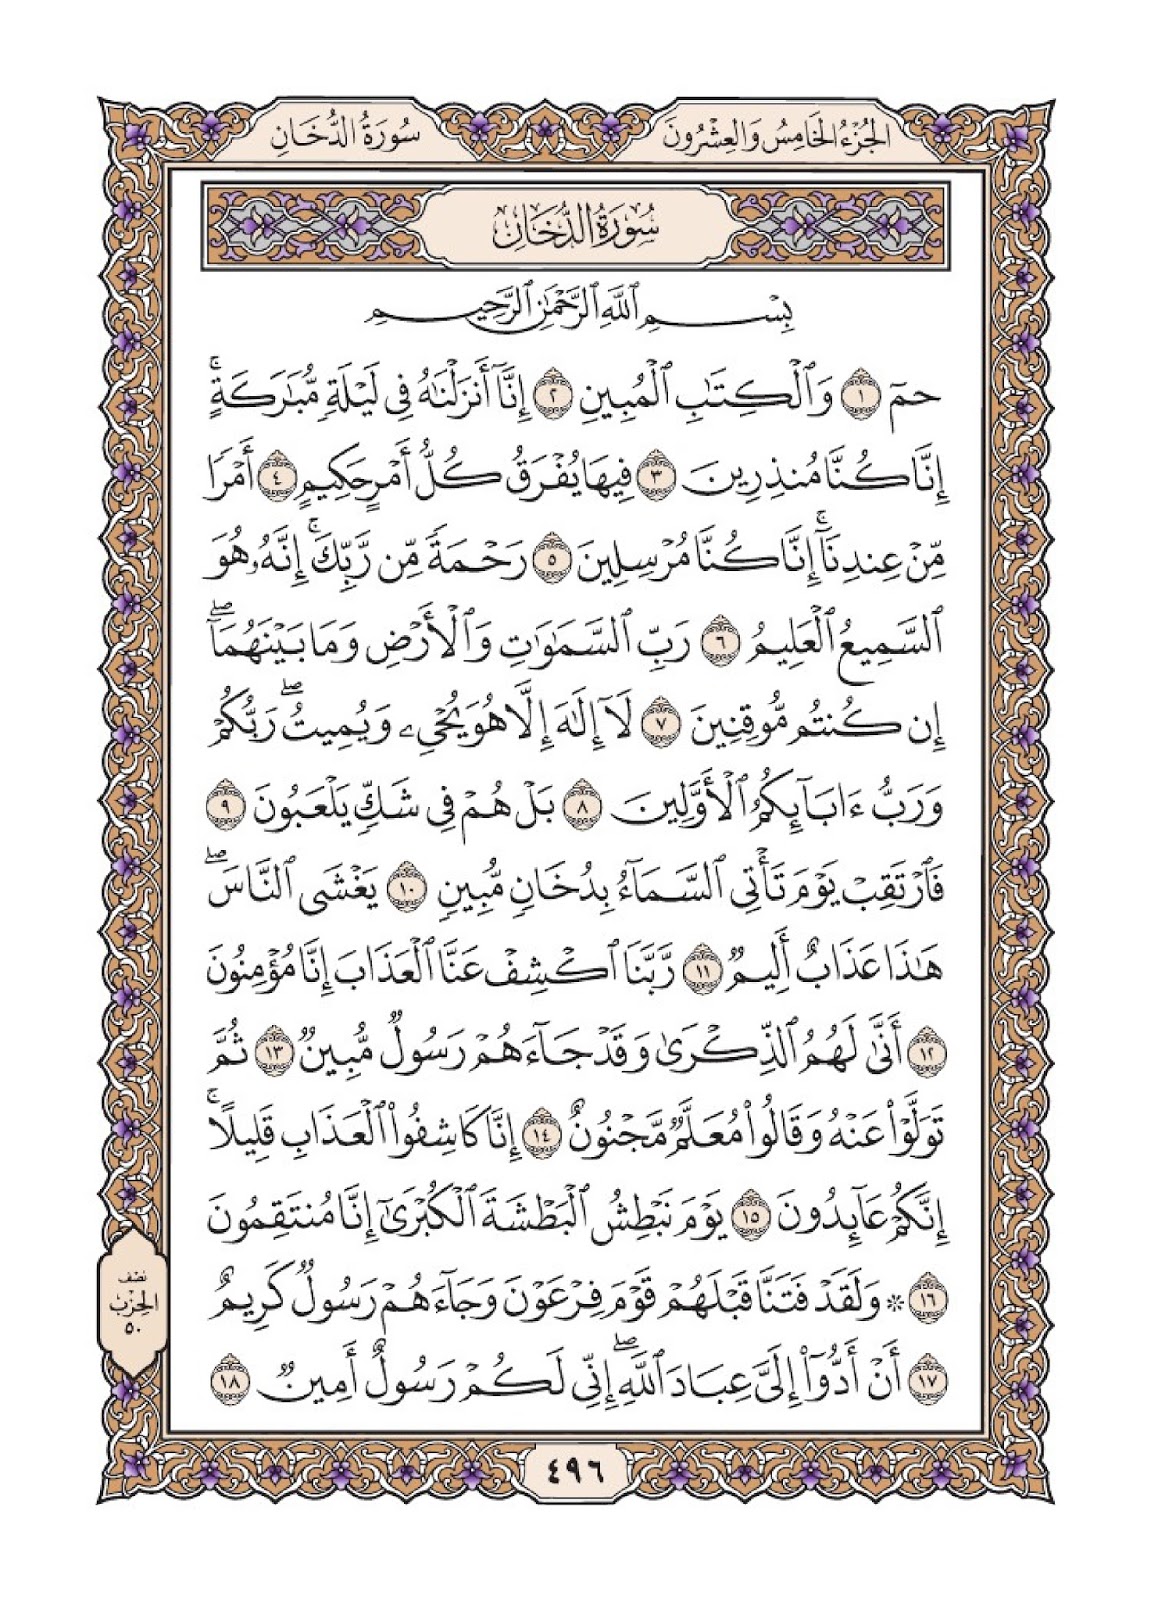 الجُزْءُ الخَامِسُ وَالعِشْرُونَ
سُورَةُ الدُّخَانِ
سُورَةُ الدُّخَانِ
بِسْمِ ٱللَّهِ ٱلرَّحْمَٰنِ ٱلرَّحِيمِ
حمٓ ١ وَٱلْكِتَٰبِ ٱلْمُبِينِ ٢ إِنَّآ أَنزَلْنَٰهُ فِى لَيْلَةٍ مُّبَٰرَكَةٍ ۚ
إِنَّا كُنَّا مُنذِرِينَ ٣ فِيهَا يُفْرَقُ كُلُّ أَمْرٍ حَكِيمٍ ٤ أَمْرًا
مِّنْ عِندِنَآ ۚ إِنَّا كُنَّا مُرْسِلِينَ ٥ رَحْمَةً مِّن رَّبِّكَ ۚ إِنَّهُۥ هُوَ
ٱلسَّمِيعُ ٱلْعَلِيمُ ٦ رَبِّ ٱلسَّمَٰوَٰتِ وَٱلْأَرْضِ وَمَا بَيْنَهُمَآ ۖ
إِن كُنتُم مُّوقِنِينَ ٧ لَآ إِلَٰهَ إِلَّا هُوَ يُحْىِۦ وَيُمِيتُ ۖ رَبُّكُمْ
وَرَبُّ ءَابَآئِكُمُ ٱلْأَوَّلِينَ ٨ بَلْ هُمْ فِى شَكٍّ يَلْعَبُونَ ٩
فَٱرْتَقِبْ يَوْمَ تَأْتِى ٱلسَّمَآءُ بِدُخَانٍ مُّبِينٍ ١٠ يَغْشَى ٱلنَّاسَ ۖ
هَٰذَا عَذَابٌ أَلِيمٌ ١١ رَّبَّنَا ٱكْشِفْ عَنَّا ٱلْعَذَابَ إِنَّا مُؤْمِنُونَ
١٢ أَنَّىٰ لَهُمُ ٱلذِّكْرَىٰ وَقَدْ جَآءَهُمْ رَسُولٌ مُّبِينٌ ١٣ ثُمَّ
تَوَلَّوْا۟ عَنْهُ وَقَالُوا۟ مُعَلَّمٌ مَّجْنُونٌ ١٤ إِنَّا كَاشِفُوا۟ ٱلْعَذَابِ قَلِيلًا ۚ
إِنَّكُمْ عَآئِدُونَ ١٥ يَوْمَ نَبْطِشُ ٱلْبَطْشَةَ ٱلْكُبْرَىٰٓ إِنَّا مُنتَقِمُونَ
١٦ ۞ وَلَقَدْ فَتَنَّا قَبْلَهُمْ قَوْمَ فِرْعَوْنَ وَجَآءَهُمْ رَسُولٌ كَرِيمٌ
١٧ أَنْ أَدُّوٓا۟ إِلَىَّ عِبَادَ ٱللَّهِ ۖ إِنِّى لَكُمْ رَسُولٌ أَمِينٌ ١٨
نِصْف
الحِزْب
٥٠
٤٩٦